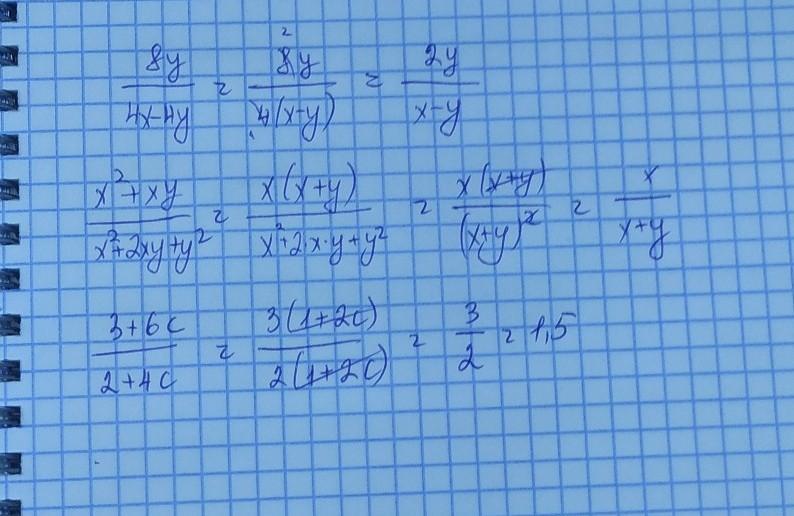 8y/(4x-4y) = 8y/4(x-y) = 2y/(x-y)
(x²+xy)/(x²+2xy+y²) = x(x+y)/(x²+2·x·y+y²) = x(x+y)/(x+y)² = x/(x+y)
(3+6c)/(2+4c) = 3(1+2c)/2(1+2c) = 3/2 = 1,5